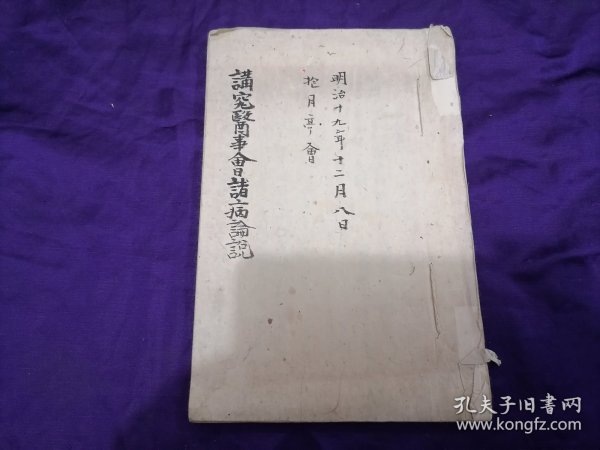 明治十九年十二月八日
拾月亭會
講究醫事會諸病論説
孔夫子旧书网
www.kongfz.com